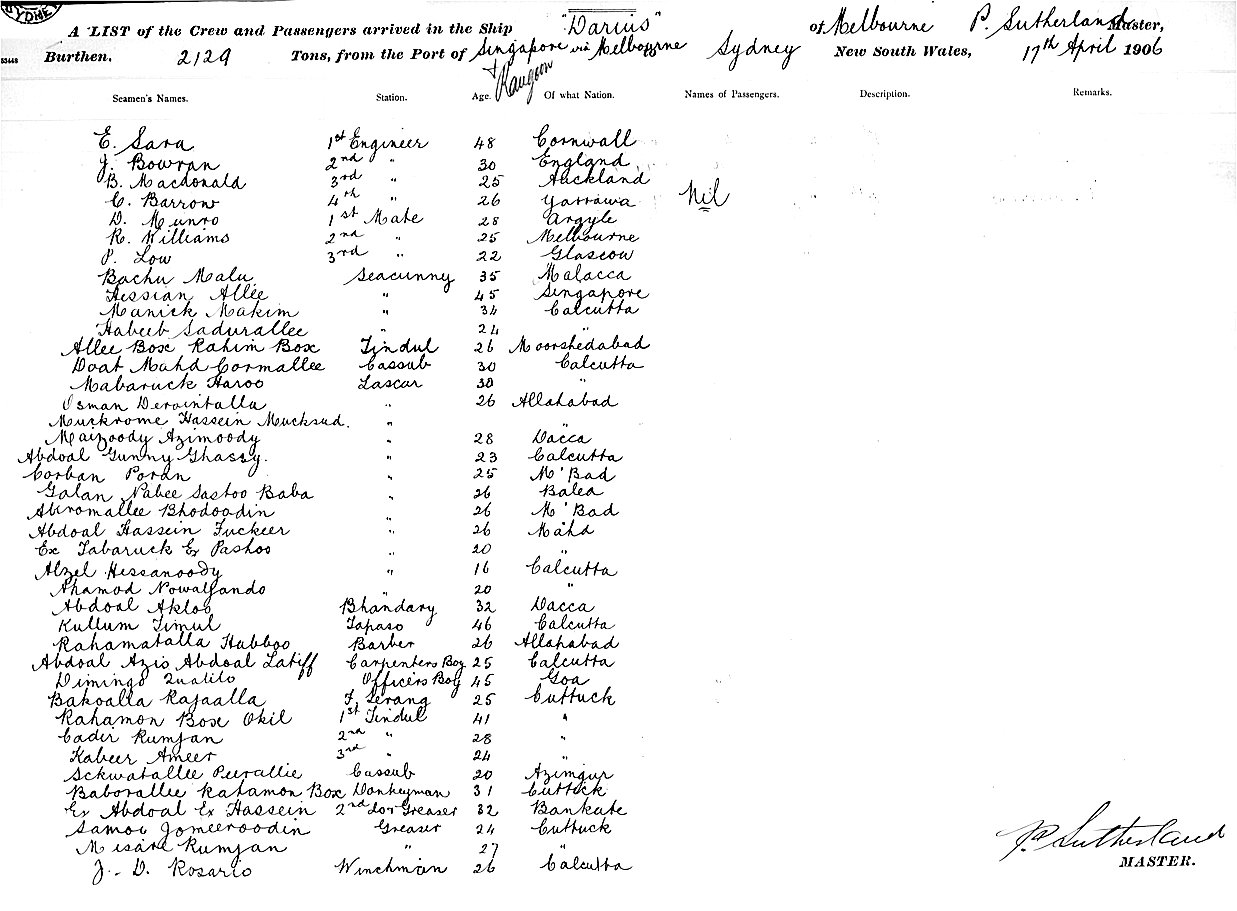 SYDNE
A LIST of the Crew and Passengers arrived in the Ship "Darius" of Melbourne P. Sutherland Master,
Burthen, 2129 Tons, from the Port of Singapore via Melbourne Sydney New South Wales, 17th April 1906
+ Rangoon
Seamen's Names. Station. Age. Of what Nation. Names of Passengers. Description. Remarks.
E. Sara 1st Engineer 48 Cornwall
J. Bowran 2nd " 30 England
B. Macdonald 3rd " 25 Auckland
C. Barrow 4th " 26 Yarrawa Nil
D. Munro 1st Mate 28 Argyle
R. Williams 2nd " 25 Melbourne
P. Low 3rd " 22 Glascow
Bachu Malu Seacunny 35 Malacca
Hessian Allee " 45 Singapore
Manick Makim " 34 Calcutta
Habeeb Sadurallee " 24 "
Allee Box Rahim Box Tindul 26 Moorshedabad
Doat Mahd Cormallee Cassub 30 Calcutta
Mabaruck Haroo Lascar 30 "
Osman Derointalla " 26 Allahabad
Muckrome Hassein Mucksud. " "
Maizoody Azimoody " 28 Dacca
Abdoal Gunny Ghassy. " 23 Calcutta
Corban Poran " 25 M'Bad
Golan Nabee Sastoo Baba " 26 Balea
Akromallee Bhodoodin " 26 M'Bad
Abdoal Hassein Fuckeer " 26 Mahd
Ex Tabaruck Ex Pashoo " 20 "
Alzel Hessanoody " 16 Calcutta
Ahamod Nowalfando " 20 "
Abdoal Akloo Bhandary 32 Dacca
Kullum Timul Tapaso 46 Calcutta
Rahamatalla Hubboo Barber 26 Allahabad
Abdoal Azis Abdoal Latiff Carpenters Boy 25 Calcutta
Dimingo Qualito Officers Boy 45 Goa
Bakoalla Rajaalla F. Serang 25 Cuttuck
Rahamon Box Okil 1st Tindul 41 "
Cadir Rumjan 2nd " 28 "
Kabeer Ameer 3rd " 24 "
Schwatallee Peerallie Cassub 20 Azimgur
Baborallee Rahamon Box Donkeyman 31 Cuttuck
Ex Abdoal Ex Hassein 2nd do & Greaser 32 Bankate
Samoo Jomeeroodin Greaser 24 Cuttuck
Misare Rumjan " 27 "
J. D. Rosario Winchman 26 Calcutta
P Sutherland
MASTER.